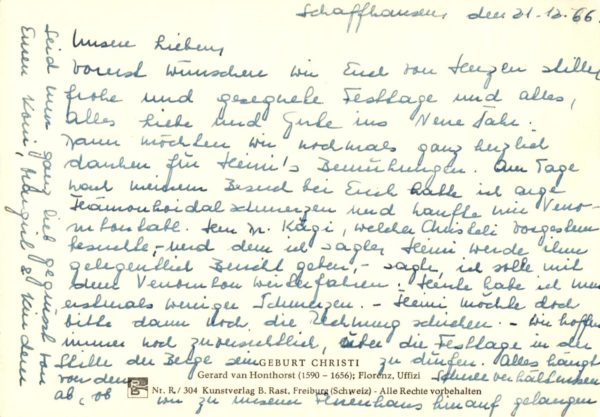 Schaffhausen, den 21.12.66.
Unsere Lieben,
Vorerst wünschen wir Euch von Herzen stille,
frohe und gesegnete Festtage und alles,
alles Liebe und Gute ins Neue Jahr.
Dann möchten wir nochmals ganz herzlich
danken für Heini's Bemühungen. Am Tage
nach meinem Besuch bei Euch hatte ich arge
Hämorrhoidalschmerzen und kaufte mir Veno-
tabl. Herr Dr. Kägi, welcher Christeli vorgestern
besuchte, - und dem ich sagte, Heini werde ihm
gelegentlich Bericht geben, - sagte, ich solle mit
dem weiterfahren. - Heute habe ich nun
erstmals weniger Schmerzen. - Heini möchte doch
bitte dann noch die Rechnung schicken. - Wir hoffen
immer noch zuversichtlich, über die Festtage in der
Stille der Berge sein zu dürfen. Alles hängt
von den Schneeverhältnissen
ab, ob wir zu unserem Ferienhaus hinauf gelangen
GEBURT CHRISTI
Gerard van Honthorst (1590 – 1656); Florenz, Uffizi
Nr. R / 304 Kunstverlag B. Rast, Freiburg (Schweiz) - Alle Rechte vorbehalten
Seid nun ganz lieb gegrüsst von
Euren Koni, Margrit & Kindern